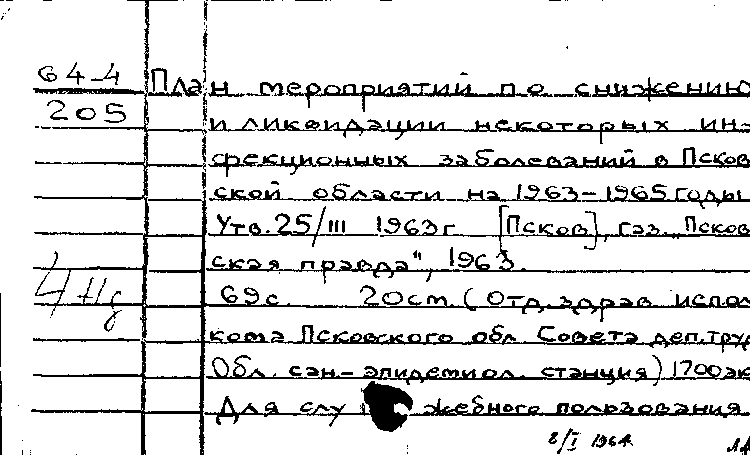 64-4 План мероприятий по снижению
205 и ликвидации некоторых ин-
фекционных заболеваний в Псков
ской области на 1963-1965 годы
Утв. 25/III 1963 г [Псков], газ. „Псков
ская правда", 1963.
69 с. 20 см. (Отд. здрав. испол
кома Псковского обл Совета деп. труд
Обл. сан-эпидемиол. станция) 1700 эк
Для слу жебного пользования
8/I 1964